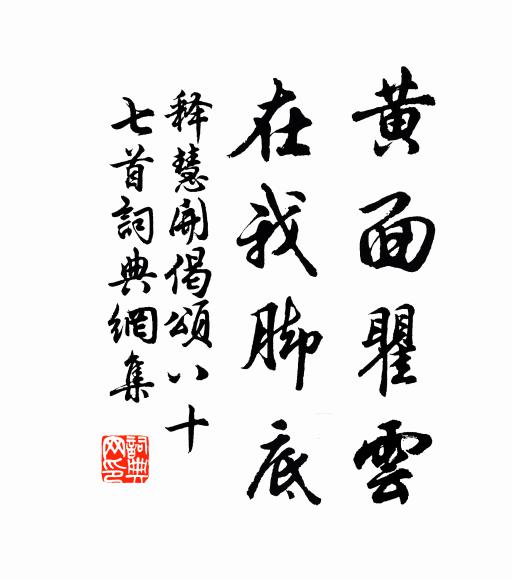 黄面瞿雲
在我脚底
释慧開偈頌八十
七首詞典網集
詞典
网印